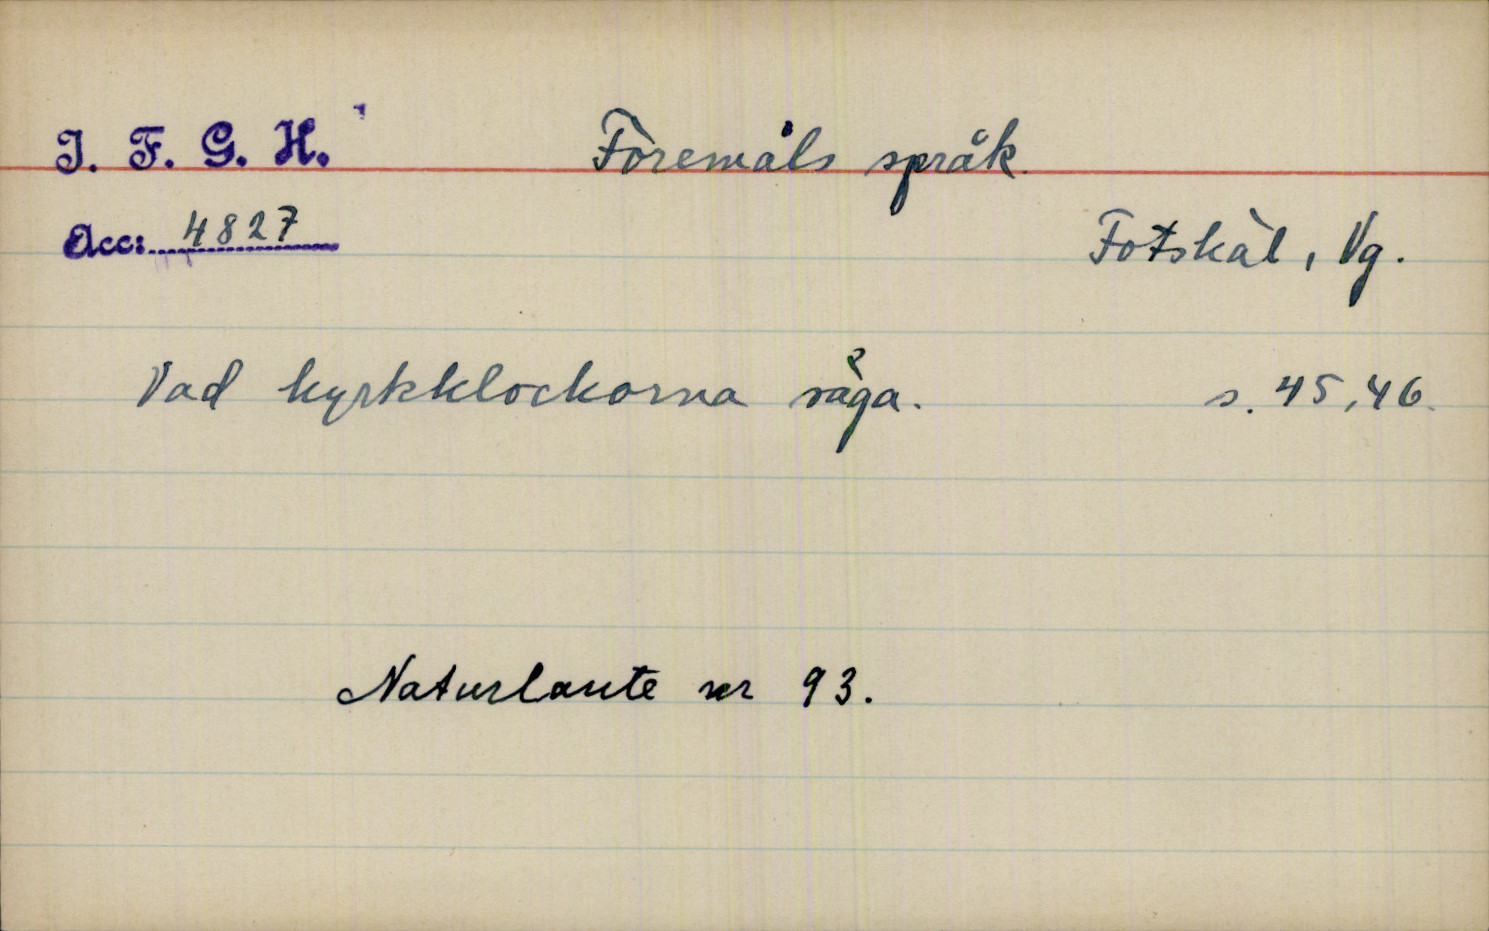 I. F. G. H. Föremåls språk.
Acc: 4827
Fotskäl, Vg.
Vad kyrkklockorna säga. s. 45, 46.
Naturlaute nr 93.